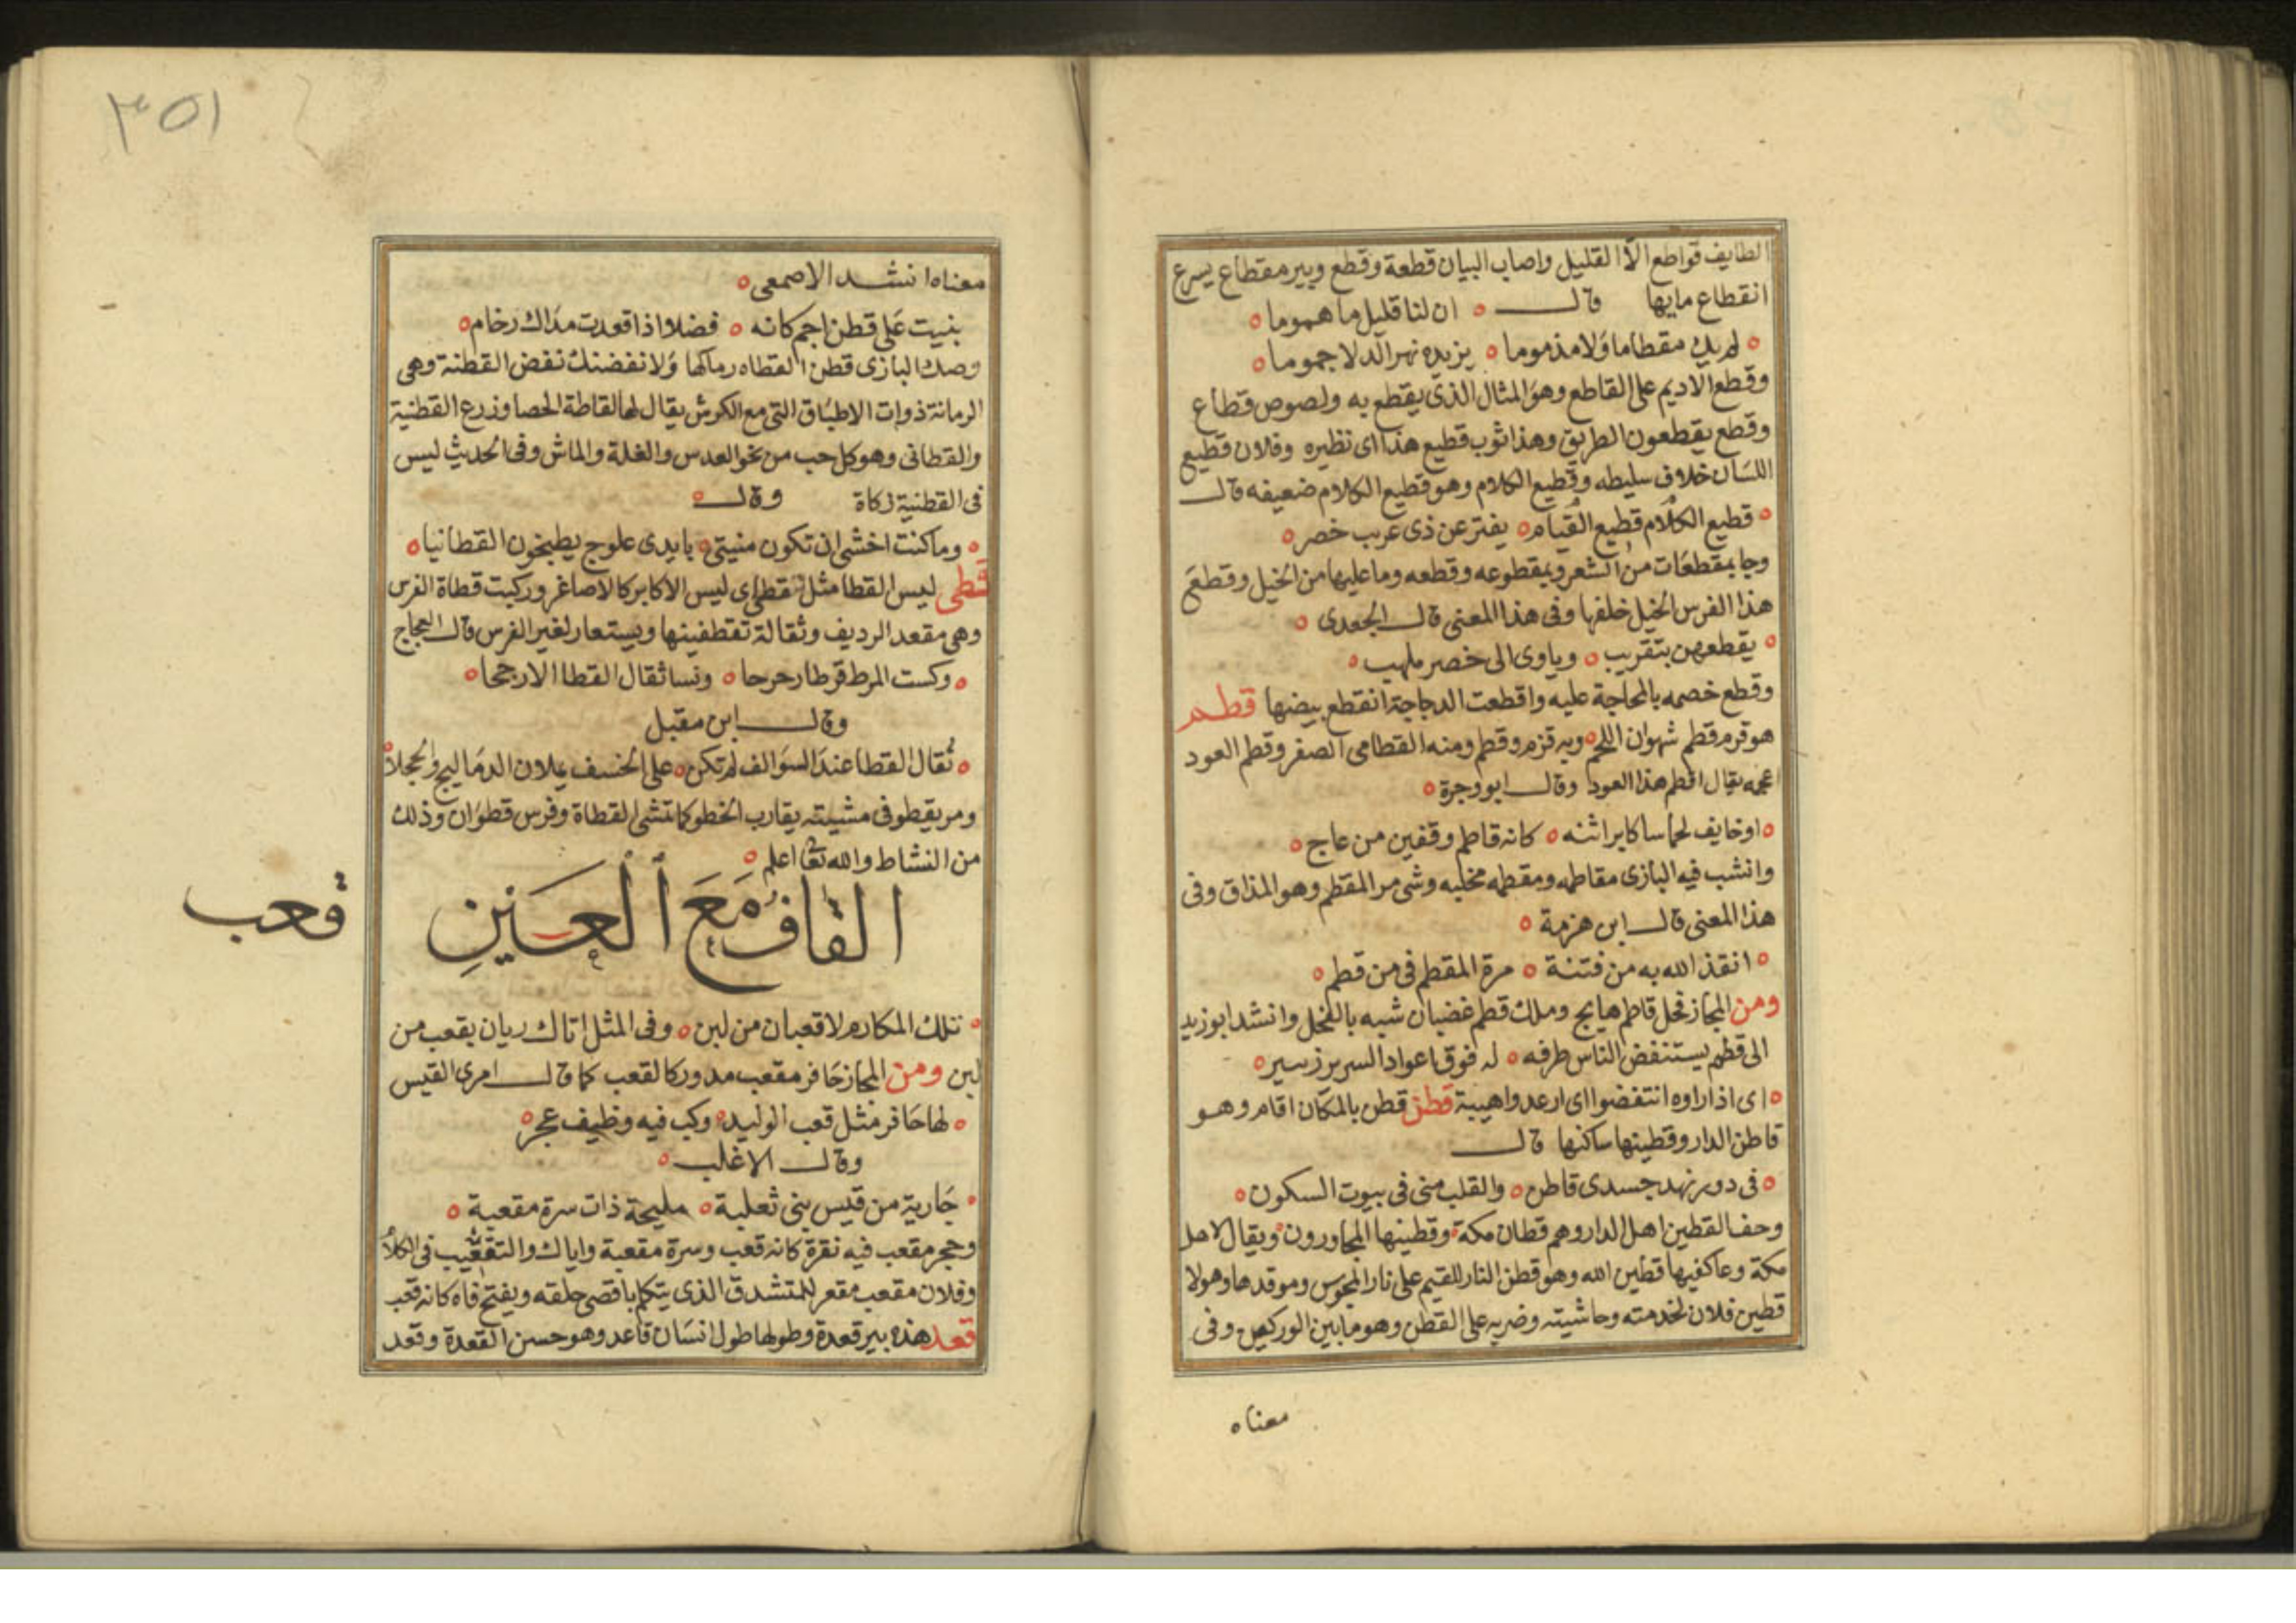 الطايف قواطع الا القليل واصاب البيان قطعة وقطع وبير مقطاع يسرع
انقطاع مايها قال ان لنا قليل ما هموما
لم يك مقطاما ولا مذموما يزيده نهر الدلا جموما
وقطع الاديم على القاطع وهو المثال الذى يقطع به ولصوص قطاع
وقطع يقطعون الطريق وهذا ثوب قطيع هذا اى نظيره وفلان قطيع
اللسان خلاف سليطه وقطيع الكلام وهو قطيع الكلام ضعيفه قال
قطيع الكلام قطيع القيام يفتر عن ذى غرب خصر
وجا بمقطعات من الشعر وبمقطوعه وقطعه وما عليها من الخيل وقطع
هذا الفرس الخيل خلفها وفى هذا المعنى قال الجعدى
يقطعهن بتقريب وياوى الى خصر ملهب
وقطع خصمه بالمحاجة عليه واقطعت الدجاجة انقطع بيضها قطم
هو قرم قطم شهوان اللحم وبه قزم وقطم ومنه القطامى الصقر وقطم العود
عجمه يقال اقطم هذا العود وقال ابو وجرة
اوخايف لحاسا كابراثنه كانه قاطم وقفين من عاج
وانشب فيه البازى مقاطمه ومقطمه مخلبه وشى مر المقطم وهو المذاق وفى
هذا المعنى قال ابن هزمة
انقذ الله به من فتنة مرة المقطم فى من قطم
ومن المجاز فحل قاطم هايج وملك قطم غضبان شبه بالفحل وانشد ابو زيد
الى قطم يستنفض الناس طرفه له فوق اعواد السرير زىير
اى اذا راوه انتفضوا اى ارعدوا هيبة قطن قطن بالمكان اقام وهو
قاطن الدار وقطينها ساكنها قال
فى دور نهد جسدى قاطن والقلب منى فى بيوت السكون
وحف القطين اهل الدار وهم قطان مكة وقطينها المجاورون ويقال لاهل
مكة وعاكفيها قطين الله وهو قطن النار للقيم على نار المجوس وموقدها وهولا
قطين فلان لخدمته وحاشيته وضربه على القطن وهو ما بين الوركين وفى
معناه
٣٥١
معناه انشد الاصمعى
بنيت على قطن اجم كانه فضلا اذا قعدت مداك رخام
وصك البازى قطن القطاه رماكها ولا نفضنك نفض القطنة وهى
الرمانة ذوات الاطباق التى مع الكرش يقال لها لقاطة الحصا وزرع القطنية
والقطانى وهو كل حب من نحو العدس والغلة والماش وفى الحديث ليس
فى القطنية زكاة وقال
وما كنت اخشى ان تكون منيتى بايدى علوج يطبخون القطانيا
قطى ليس القطا مثل قطى اى ليس الاكابر كالاصاغر وركبت قطاة الفرس
وهى مقعد الرديف وثقالة تقطفينها ويستعار لغير الفرس قال العجاج
وكست المرط قرطا رحرحا ونسا ثقال القطا الارجحا
وقال ابن مقبل
ثقال القطا عند السوالف لم تكن على الخسف يملان الدماليج والحجلا
ومر يقطو فى مشيته يقارب الخطو كما تنشى القطاة وفرس قطوان وذلك
من النشاط والله تعا اعلم
القاف مع العين
قعب
تلك المكارم لا قعبان من لبن وفى المثل اتاك ريان بقعب من
لبن ومن المجاز حافر مقعب مدور كالقعب كما قال امرى القيس
لها حافر مثل قعب الوليد وكب فيه وظيف عجر
وقال الاغلب
جارية من قيس بنى ثعلبة مليحة ذات سرة مقعبة
وحجر مقعب فيه نقرة كانه قعب وسرة مقعبة واياك والتقعيب فى الكلام
وفلان مقعب مقعر للمتشدق الذى يتكلم باقصى حلقه ويفتح فاه كانه قعب
قعد هذه بير قعدة وطولها طول انسان قاعد وهو حسن القعدة وقعد